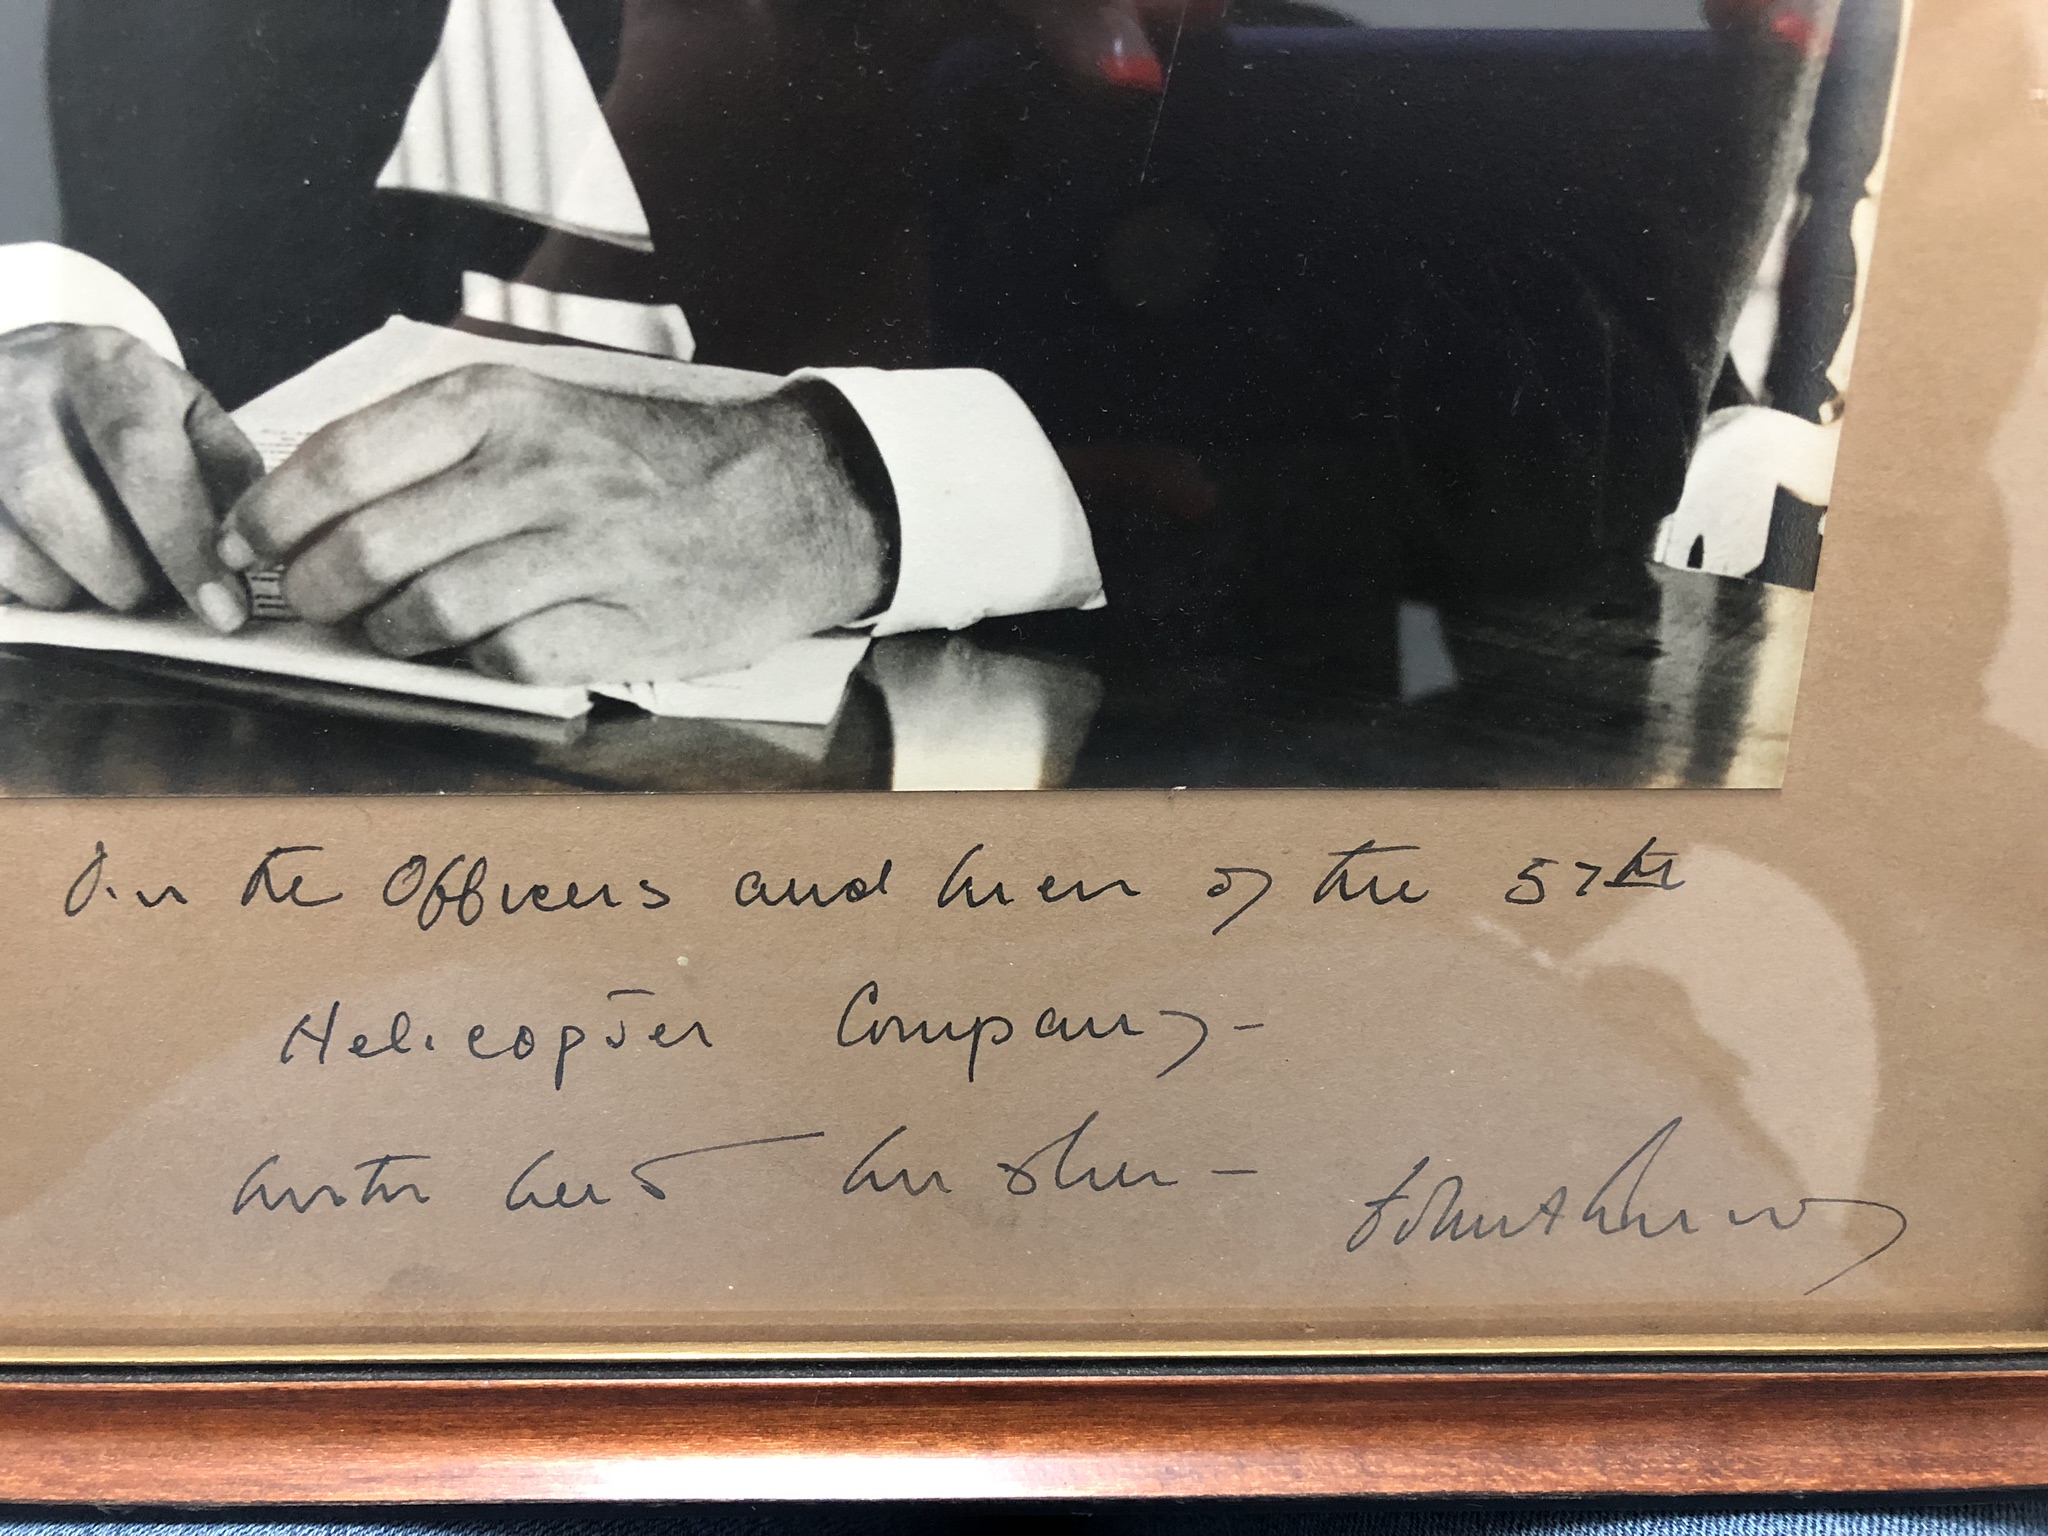 For the Officers and men of the 57th
Helicopter Company -
with best wishes -